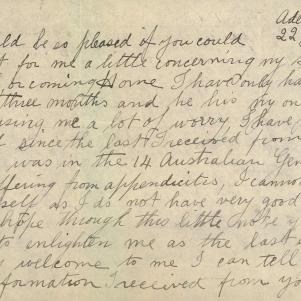 Ade
22
ld be so pleased if you could
t for me a little concerning my s
or coming Home I have only ha
three months and he his my on
using me a lot of worry I have
d since the last I received from
was in the 14 Australian Gen
ffering from appendicites, I canno
self as I do not have very good
hope through this little note y
to enlighten me as the last
y welcome to me I can tell
formation I received from yo